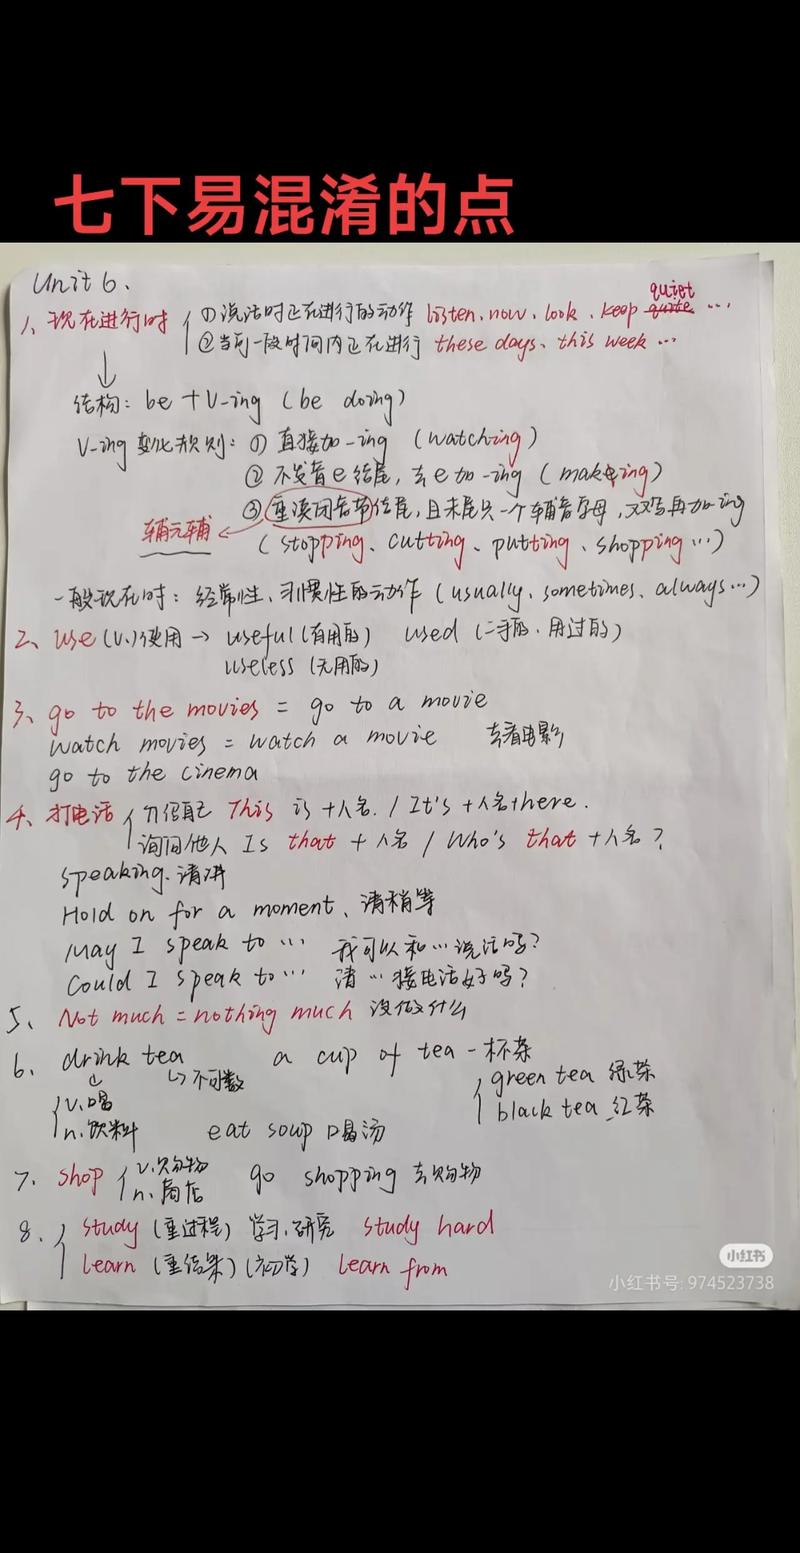 七下易混淆的点
Unit 6.
1、现在进行时 ①说话时正在进行的动作 listen、now、look、keep quiet ...
②当前一段时间内正在进行 these days、this week ...
结构: be + V-ing (be doing)
V-ing 变化规则: ① 直接加-ing (watching)
② 不发音e结尾, 去e加-ing (making)
辅元辅 ③ 重读闭音节结尾, 且末尾只一个辅音字母, 双写再加-ing
(stopping、cutting、putting、shopping ...)
一般现在时: 经常性、习惯性的动作 (usually、sometimes、always...)
2、use (v.) 使用 → useful (有用的) used (二手的、用过的)
useless (无用的)
3、go to the movies = go to a movie
watch movies = watch a movie 去看电影
go to the cinema
4、打电话 介绍自己 This is + 人名. / It's + 人名 there.
询问他人 Is that + 人名 / Who's that + 人名?
speaking. 请讲
Hold on for a moment、请稍等
May I speak to ... 我可以和...说话吗?
Could I speak to ... 请...接电话好吗?
5、Not much = nothing much 没做什么
6、drink tea a cup of tea 一杯茶
↳ 不可数 green tea 绿茶
v.喝 black tea 红茶
n.饮料 eat soup 喝汤
7、shop v.购物 go shopping 去购物
n.商店
8. study (重过程) 学习、研究 study hard
learn (重结果) (初学) learn from
小红书
小红书号: 974523738